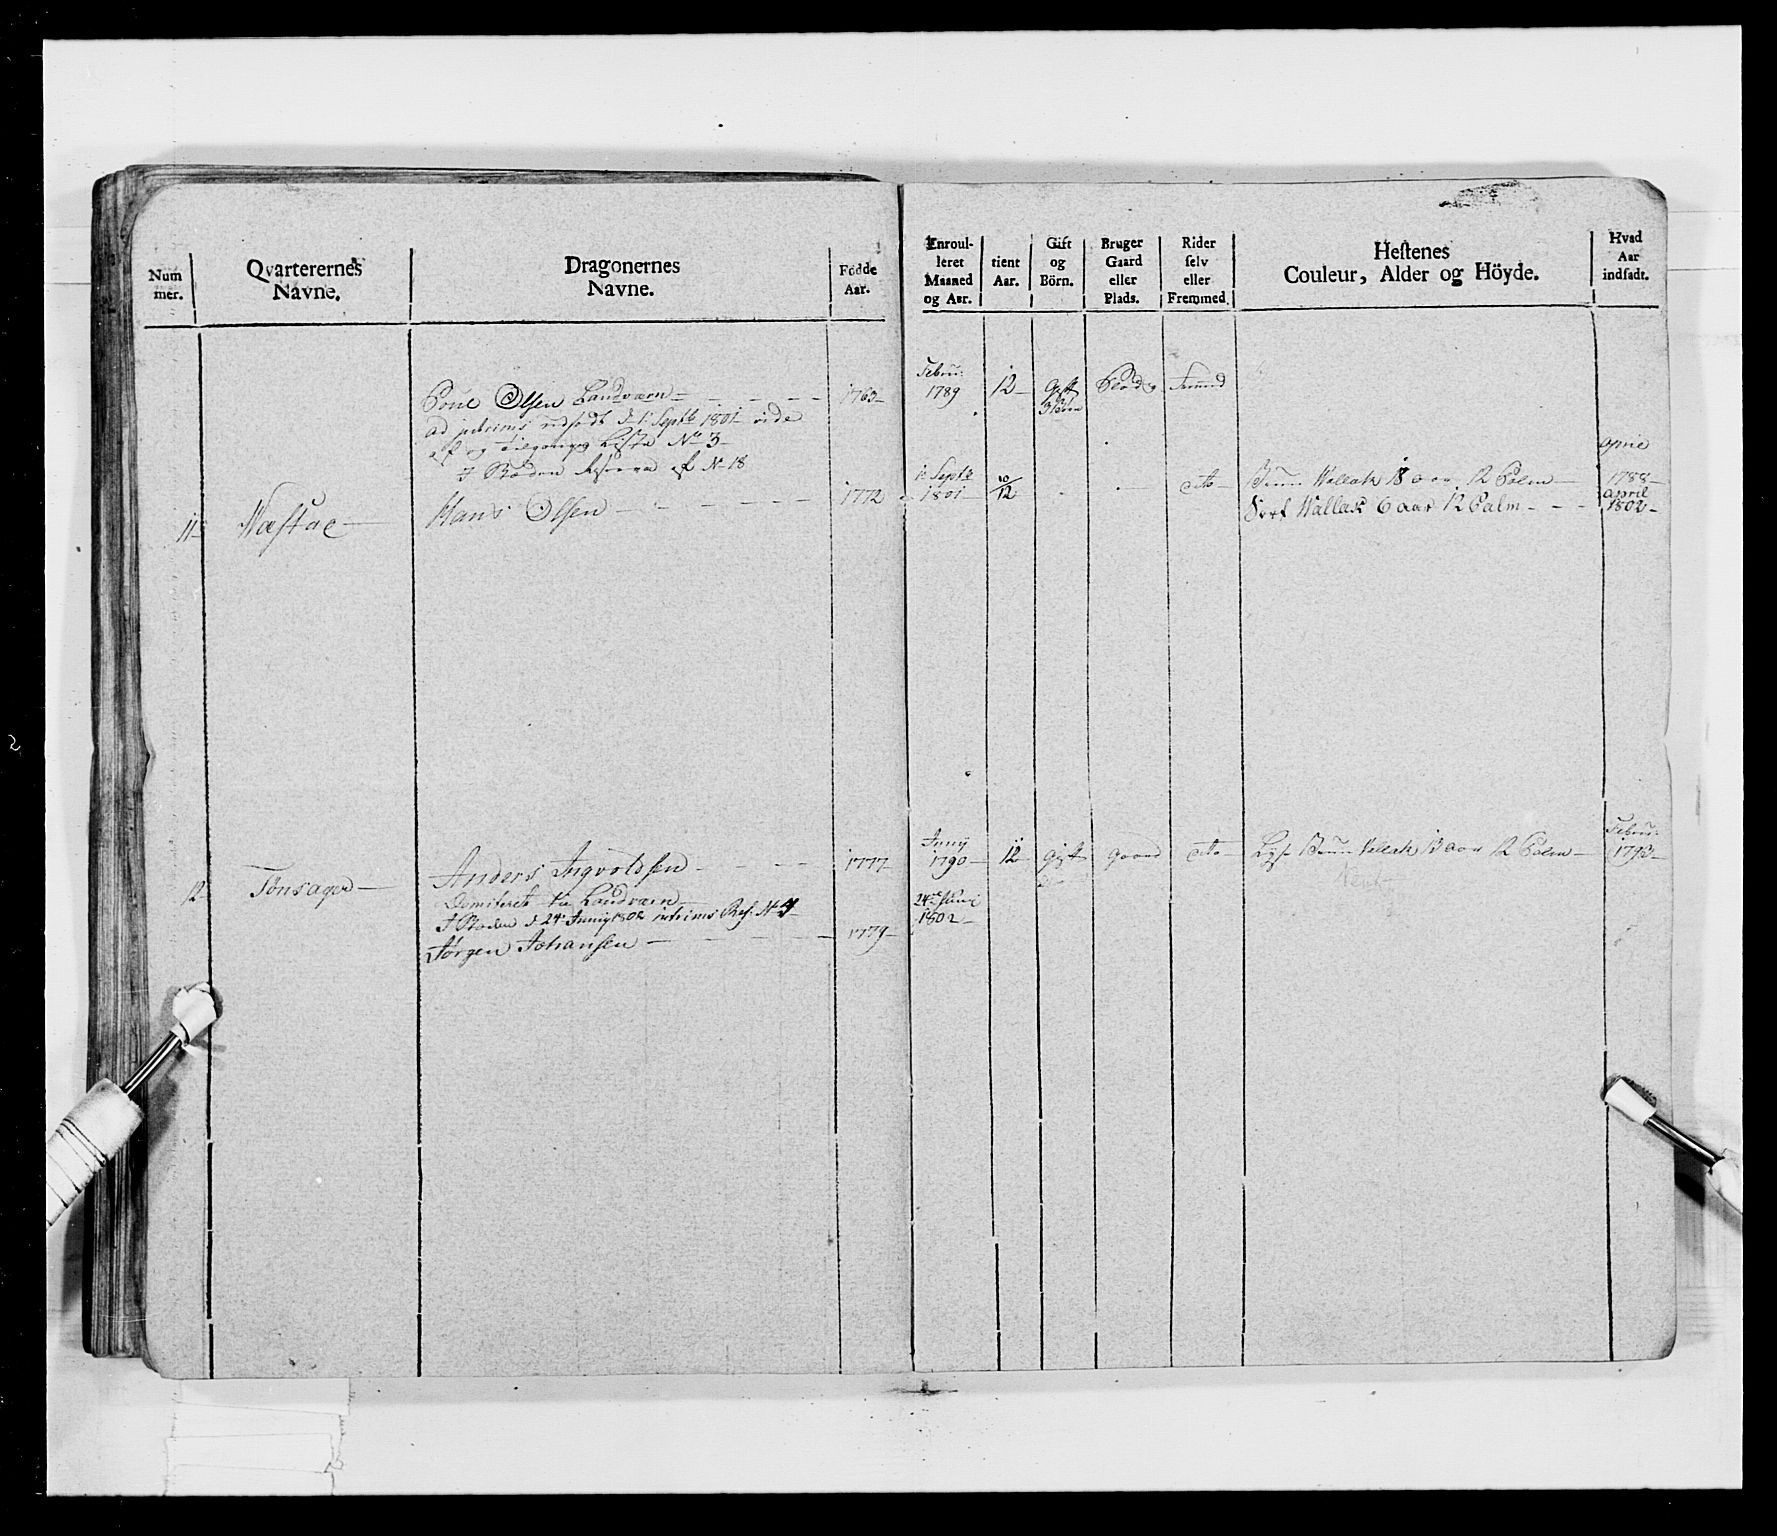 Num
mer.
Qvarterernes
Navne.
Dragonernes
Navne.
Födde
Aar.
Enroul-
leret
Maaned
og Aar.
tient
Aar.
Gift
og
Börn.
Bruger
Gaard
eller
Plads.
Rider
selv
eller
Fremmed.
Hestenes
Couleur, Alder og Höyde.
Hvad
Aar
indsadt.
Olsen Landværn
1763
Febru:
1789
12
Gift
3 Börn
Plads
Fremd
ad interims udsadt d 1 Septb 1801 vide
af og Tilgangs Liste No 3
I Stæden Reserve af No 18
11
Hans Olsen
1772
1 Septb
1801
10/12
dito
Bruun Wallak 18 aar 12 Palm
April
1788
Sort Wallak 6 aar 12 Palm
April
1802
12
Tönsager
Anders Ingvoldsen
1777
Junij
1790
12
Gift
Gaard
dito
Lys Bruun Wallak 13 aar 12 Palm
Febru:
1793
Demiteret til Landværn
I Stæden d 24 Junij 1802 interims Res: No 4
24 Junij
1802
Jörgen Johansen
1779